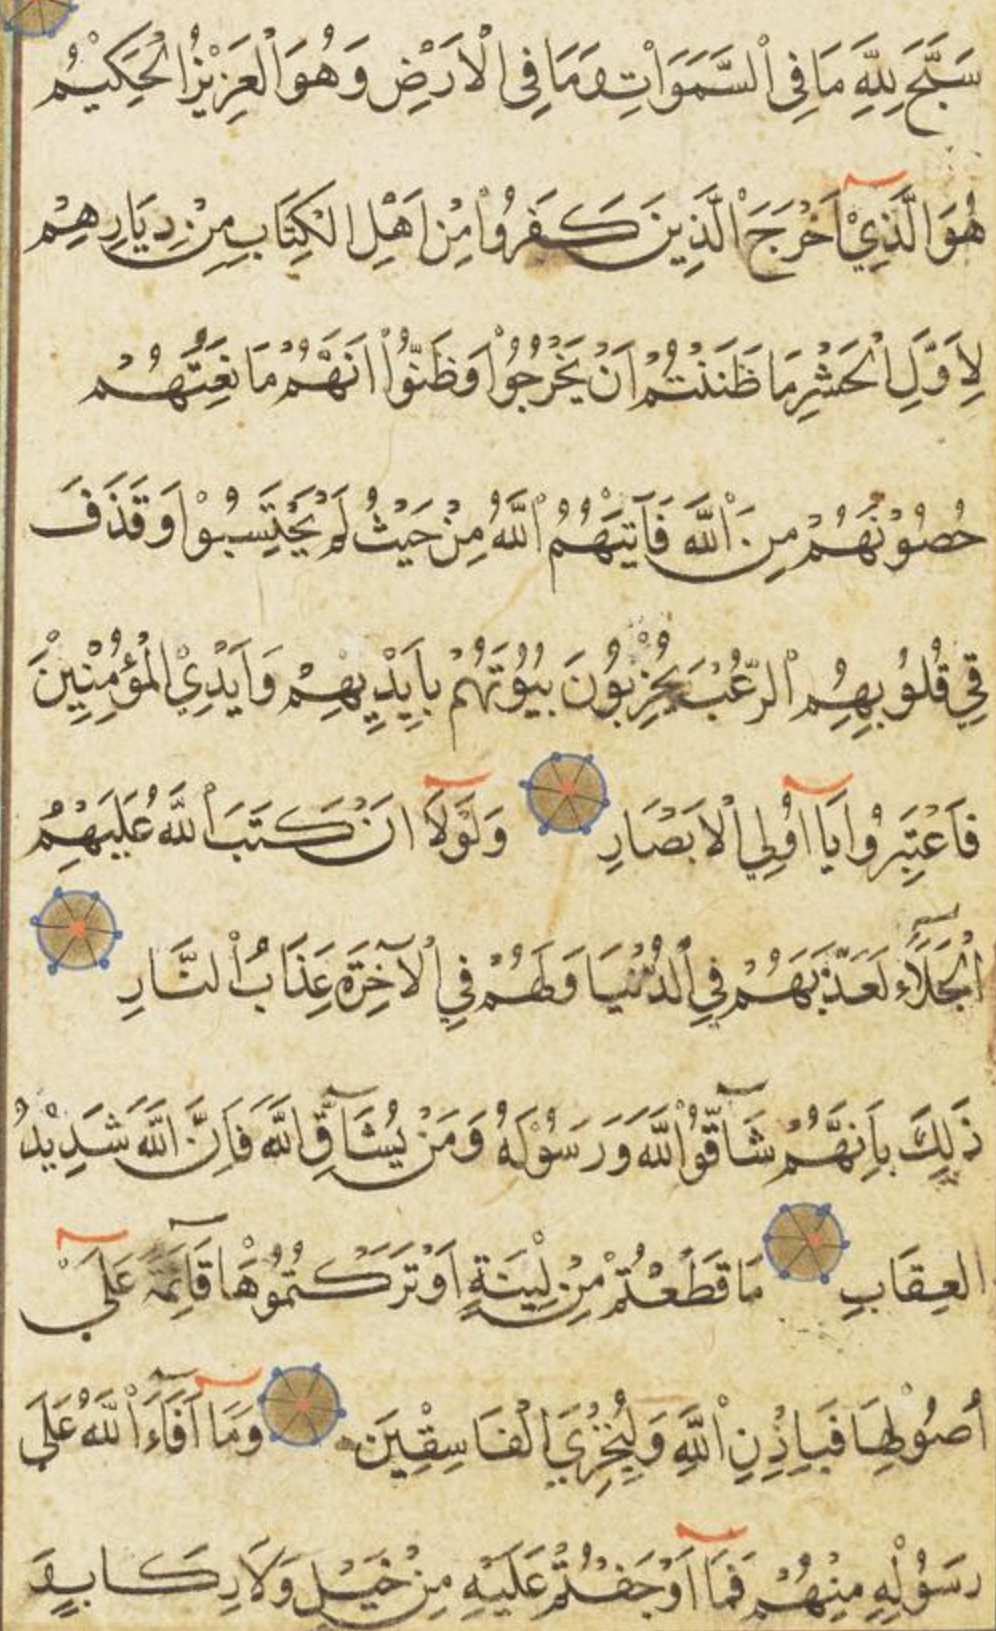 سَبَّحَ لِلَّهِ مَا فِي السَّمَوَاتِ وَمَا فِي الْاَرْضِ وَهُوَ الْعَزِيْزُ الْحَكِيْمُ
هُوَ الَّذِيْ اَخْرَجَ الَّذِينَ كَفَرُوْا مِنْ اَهْلِ الْكِتَابِ مِنْ دِيَارِهِمْ
لِاَوَّلِ الْحَشْرِ مَا ظَنَنْتُمْ اَنْ يَخْرُجُوْا وَظَنُّوْا اَنَّهُمْ مَانِعَتُهُمْ
حُصُوْنُهُمْ مِنَ اللَّهِ فَآتَيهُمُ اللَّهُ مِنْ حَيْثُ لَمْ يَحْتَسِبُوْا وَقَذَفَ
فِي قُلُوْبِهِمُ الرُّعْبَ يُخْرِبُوْنَ بُيُوْتَهُمْ بِاَيْدِيْهِمْ وَاَيْدِي الْمُؤْمِنِيْنَ
فَاعْتَبِرُوْا يَا اُولِي الْاَبْصَارِ وَلَوْلَا اَنْ كَتَبَ اللَّهُ عَلَيْهِمُ
الْجَلَاءَ لَعَذَّبَهُمْ فِي الدُّنْيَا وَلَهُمْ فِي الْآخِرَةِ عَذَابُ النَّارِ
ذَلِكَ بِاَنَّهُمْ شَاقُّوا اللَّهَ وَرَسُوْلَهُ وَمَنْ يُشَاقِّ اللَّهَ فَاِنَّ اللَّهَ شَدِيْدُ
الْعِقَابِ مَا قَطَعْتُمْ مِنْ لِيْنَةٍ اَوْ تَرَكْتُمُوْهَا قَائِمَةً عَلَى
اُصُوْلِهَا فَبِاِذْنِ اللَّهِ وَلِيُخْزِيَ الْفَاسِقِيْنَ وَمَا اَفَاءَ اللَّهُ عَلَى
رَسُوْلِهِ مِنْهُمْ فَمَا اَوْجَفْتُمْ عَلَيْهِ مِنْ خَيْلٍ وَلَا رِكَابٍ وَ